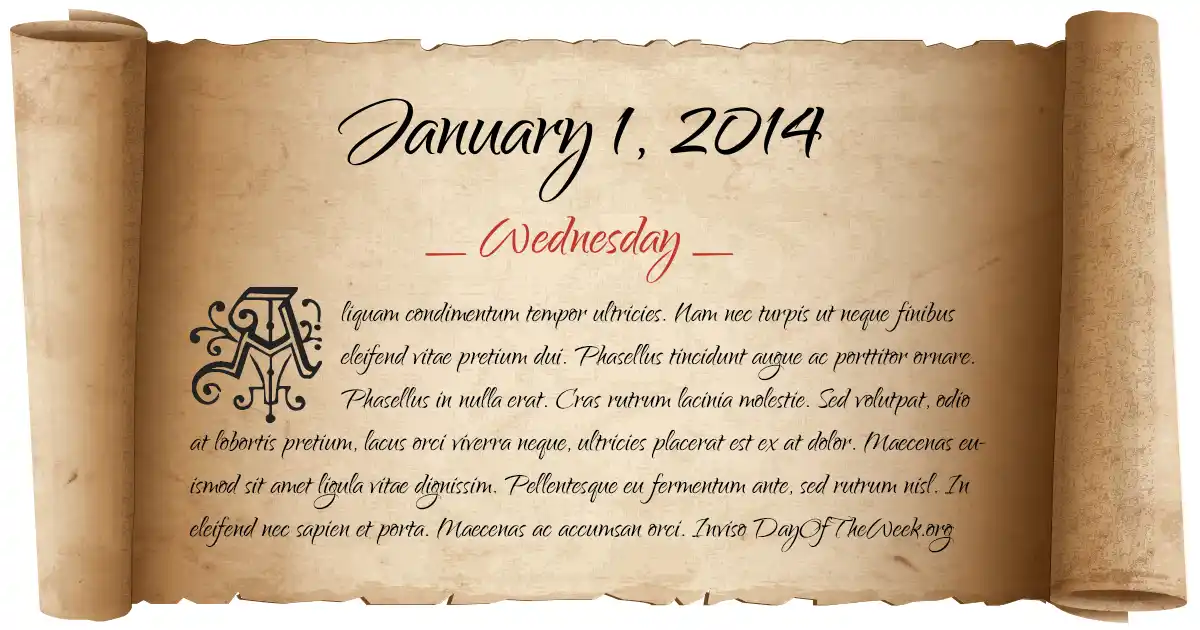 January 1, 2014
— Wednesday —
Aliquam condimentum tempor ultricies. Nam nec turpis ut neque finibus
eleifend vitae pretium dui. Phasellus tincidunt augue ac porttitor ornare.
Phasellus in nulla erat. Cras rutrum lacinia molestie. Sed volutpat, odio
at lobortis pretium, lacus orci viverra neque, ultricies placerat est ex at dolor. Maecenas eu-
ismod sit amet ligula vitae dignissim. Pellentesque eu fermentum ante, sed rutrum nisl. In
eleifend nec sapien et porta. Maecenas ac accumsan orci. Inviso DayOfTheWeek.org